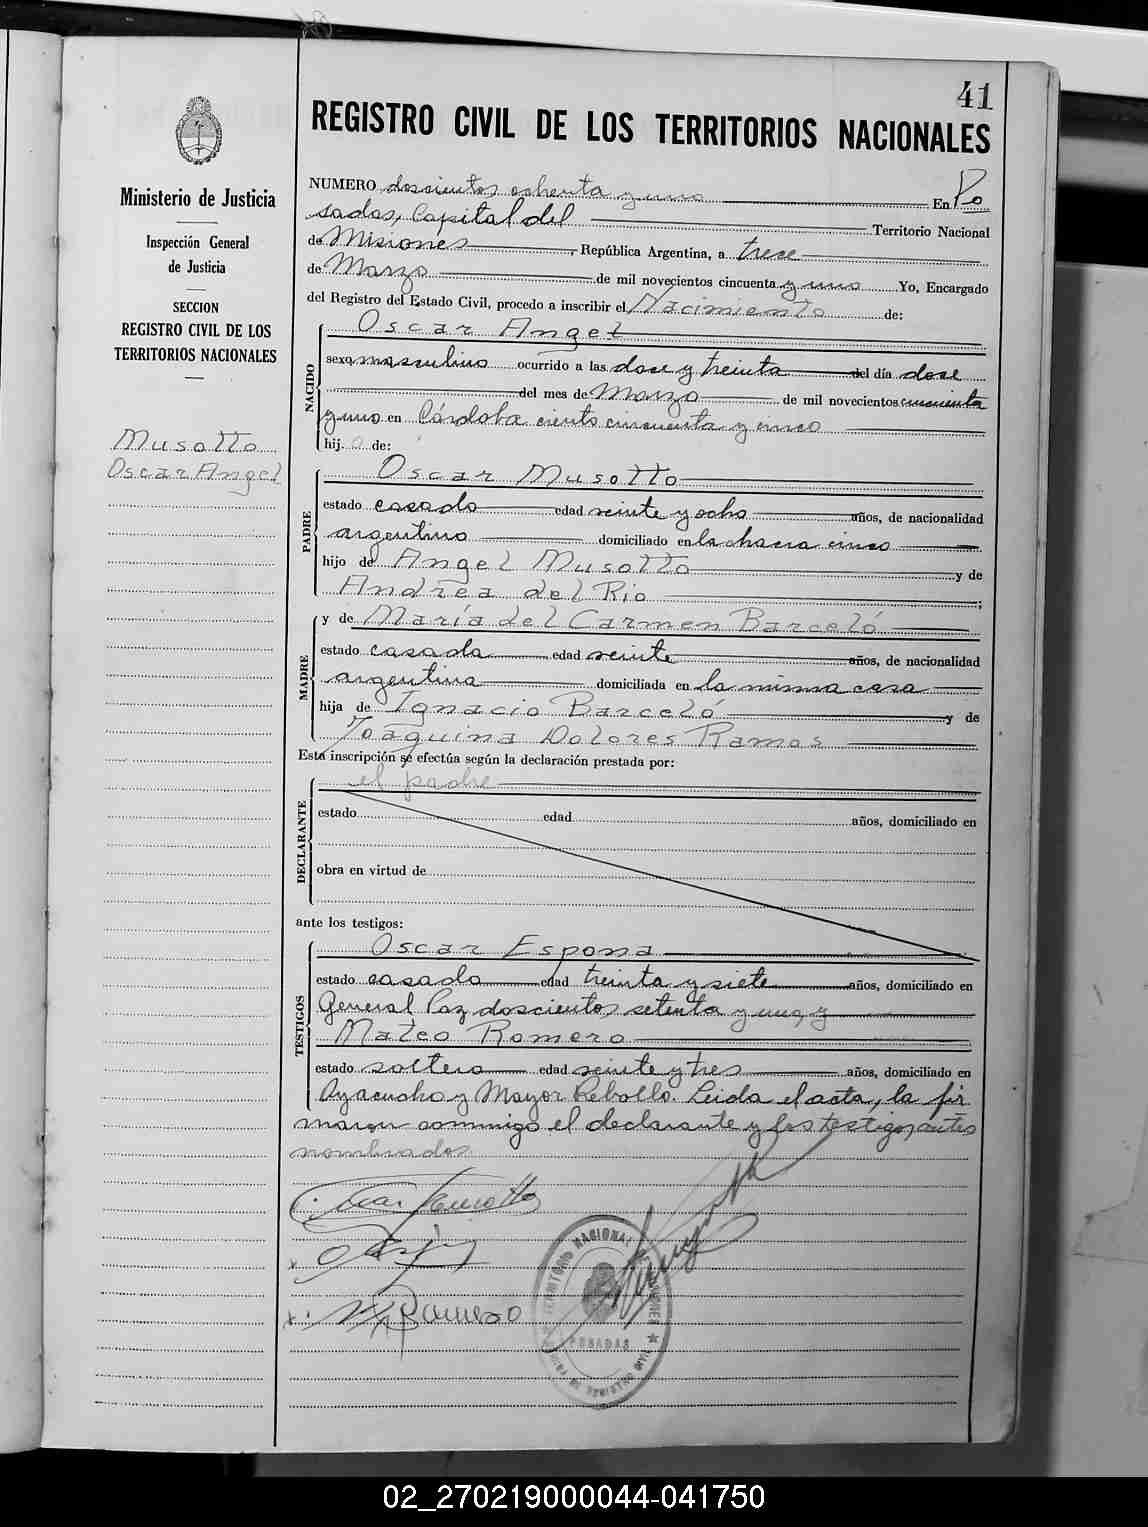 41
REGISTRO CIVIL DE LOS TERRITORIOS NACIONALES
Ministerio de Justicia
Inspección General
de Justicia
SECCION
REGISTRO CIVIL DE LOS
TERRITORIOS NACIONALES
Musotto
Oscar Angel
NUMERO doscientos ochenta y uno En Po
sadas, Capital del Territorio Nacional
de Misiones, República Argentina, a trece
de Marzo de mil novecientos cincuenta y uno Yo, Encargado
del Registro del Estado Civil, procedo a inscribir el Nacimiento de:
NACIDO
Oscar Angel
sexo masculino ocurrido a las doce y treinta del día doce
del mes de Marzo de mil novecientos cincuenta
y uno en Córdoba ciento cincuenta y cinco
hijo de:
PADRE
Oscar Musotto
estado casado edad veinte y ocho años, de nacionalidad
argentino domiciliado en la chacra cinco
hijo de Angel Musotto y de
Andrea del Rio;
MADRE
y de María del Carmen Barceló
estado casada edad veinte años, de nacionalidad
argentina domiciliada en la misma casa
hija de Ignacio Barceló y de
Joaquina Dolores Ramos
Esta inscripción se efectúa según la declaración prestada por:
DECLARANTE
el padre
estado edad años, domiciliado en
obra en virtud de
ante los testigos:
TESTIGOS
Oscar Espona
estado casado edad treinta y siete años, domiciliado en
General Paz doscientos setenta y uno, y
Mateo Romero
estado soltero edad veinte y tres años, domiciliado en
Ayacucho y Mayor Rebollo. Leida el acta, la fir
maron conmigo el declarante y los testigos antes
nombrados
Oscar Musotto
M Romero
TERRITORIO NACIONAL DE MISIONES
POSADAS
02_270219000044-041750